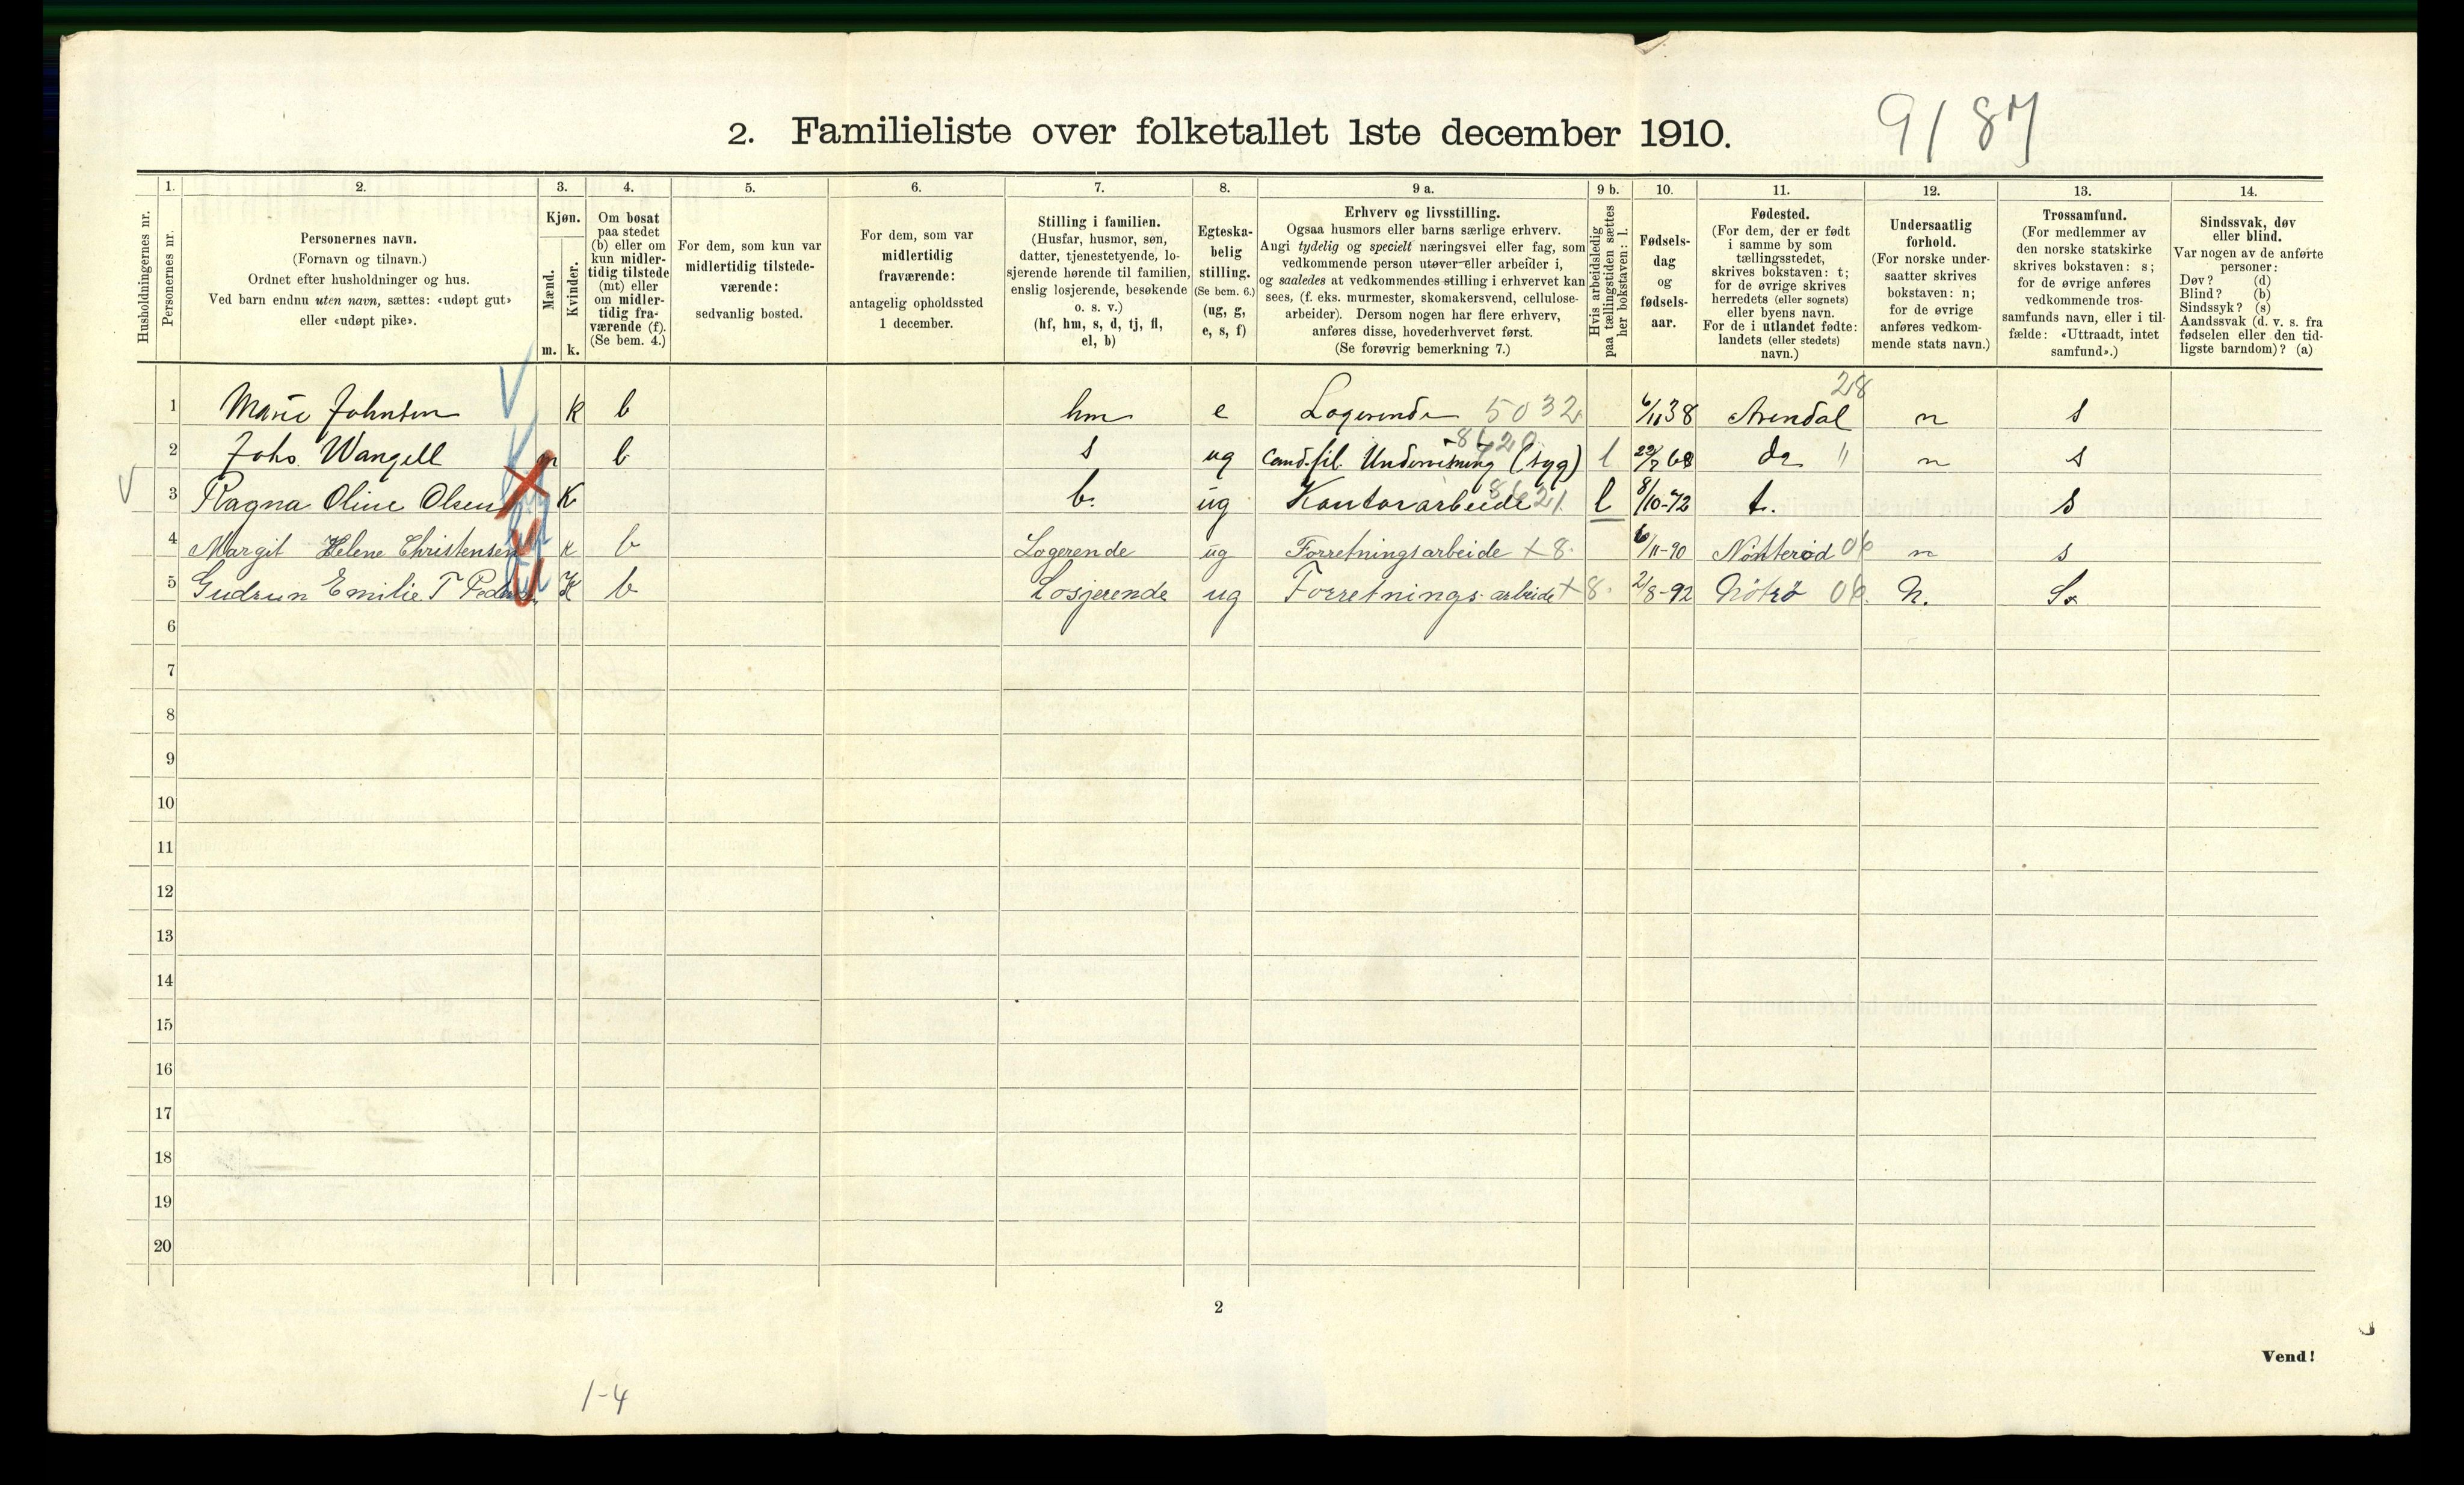 2. Familieliste over folketallet 1ste december 1910.
9187
Husholdningernes nr.
1. Personernes nr.
2. Personernes navn.
(Fornavn og tilnavn.)
Ordnet efter husholdninger og hus.
Ved barn endnu uten navn, sættes: «udøpt gut»
eller «udøpt pike».
3. Kjøn.
Mænd. m.
Kvinder. k.
4. Om bosat
paa stedet
(b) eller om
kun midler-
tidig tilstede
(mt) eller
om midler-
tidig fra-
værende (f).
(Se bem. 4.)
5. For dem, som kun var
midlertidig tilstede-
værende:
sedvanlig bosted.
6. For dem, som var
midlertidig
fraværende:
antagelig opholdssted
1 december.
7. Stilling i familien.
(Husfar, husmor, søn,
datter, tjenestetyende, lo-
sjerende hørende til familien,
enslig losjerende, besøkende
o. s. v.)
(hf, hm, s, d, tj, fl,
el, b)
8. Egteska-
belig
stilling.
(Se bem. 6.)
(ug, g,
e, s, f)
9 a. Erhverv og livsstilling.
Ogsaa husmors eller barns særlige erhverv.
Angi tydelig og specielt næringsvei eller fag, som
vedkommende person utøver eller arbeider i,
og saaledes at vedkommendes stilling i erhvervet kan
sees, (f. eks. murmester, skomakersvend, cellulose-
arbeider). Dersom nogen har flere erhverv,
anføres disse, hovederhvervet først.
(Se forøvrig bemerkning 7.)
9 b. Hvis arbeidsledig
paa tællingstiden sættes
her bokstaven: l.
10. Fødsels-
dag
og
fødsels-
aar.
11. Fødested.
(For dem, der er født
i samme by som
tællingsstedet,
skrives bokstaven: t;
for de øvrige skrives
herredets (eller sognets)
eller byens navn.
For de i utlandet fødte:
landets (eller stedets)
navn.)
12. Undersaatlig
forhold.
(For norske under-
saatter skrives
bokstaven: n;
for de øvrige
anføres vedkom-
mende stats navn.)
13. Trossamfund.
(For medlemmer av
den norske statskirke
skrives bokstaven: s;
for de øvrige anføres
vedkommende tros-
samfunds navn, eller i til-
fælde: «Uttraadt, intet
samfund».)
14. Sindssvak, døv
eller blind.
Var nogen av de anførte
personer:
Døv? (d)
Blind? (b)
Sindssyk? (s)
Aandssvak (d. v. s. fra
fødselen eller den tid-
ligste barndom)? (a)
1 Marie Johnsen K b hm e Logerende 5032 6/11 38 Arendal 28 n s
2 Johs. Wangell m b s ug Cand. fil. Undervisning (syg) l 22/7 68 do " n s
3 Ragna Oline Olsen K b. ug Kontorarbeide l 8/10-72 t. s
4 Margit Helene Christensen k b Logerende ug Forretningsarbeide + 8. 6/11-90 Nötterød 06 n s
5 Gudrun Emilie T Pedersen K b Losjerende ug Forretnings-arbeide + 8. 2/8-92 Nötrö 06. N. S.
6
7
8
9
10
11
12
13
14
15
16
17
18
19
20
2
Vend!
1-4